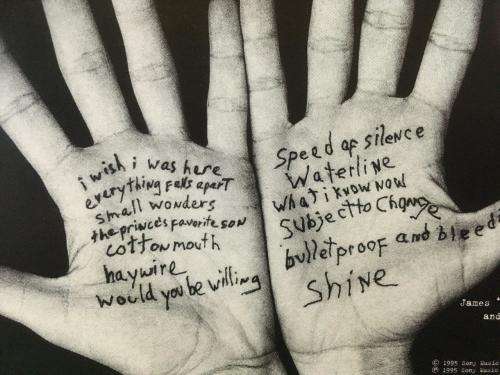 i wish i was here
everything falls apart
small wonders
the prince's favorite son
cottonmouth
haywire
would you be willing
Speed of silence
Waterline
what i know now
Subject to Change
bulletproof and bleed
Shine
James
and
© 1995 Sony Music
℗ 1995 Sony Music